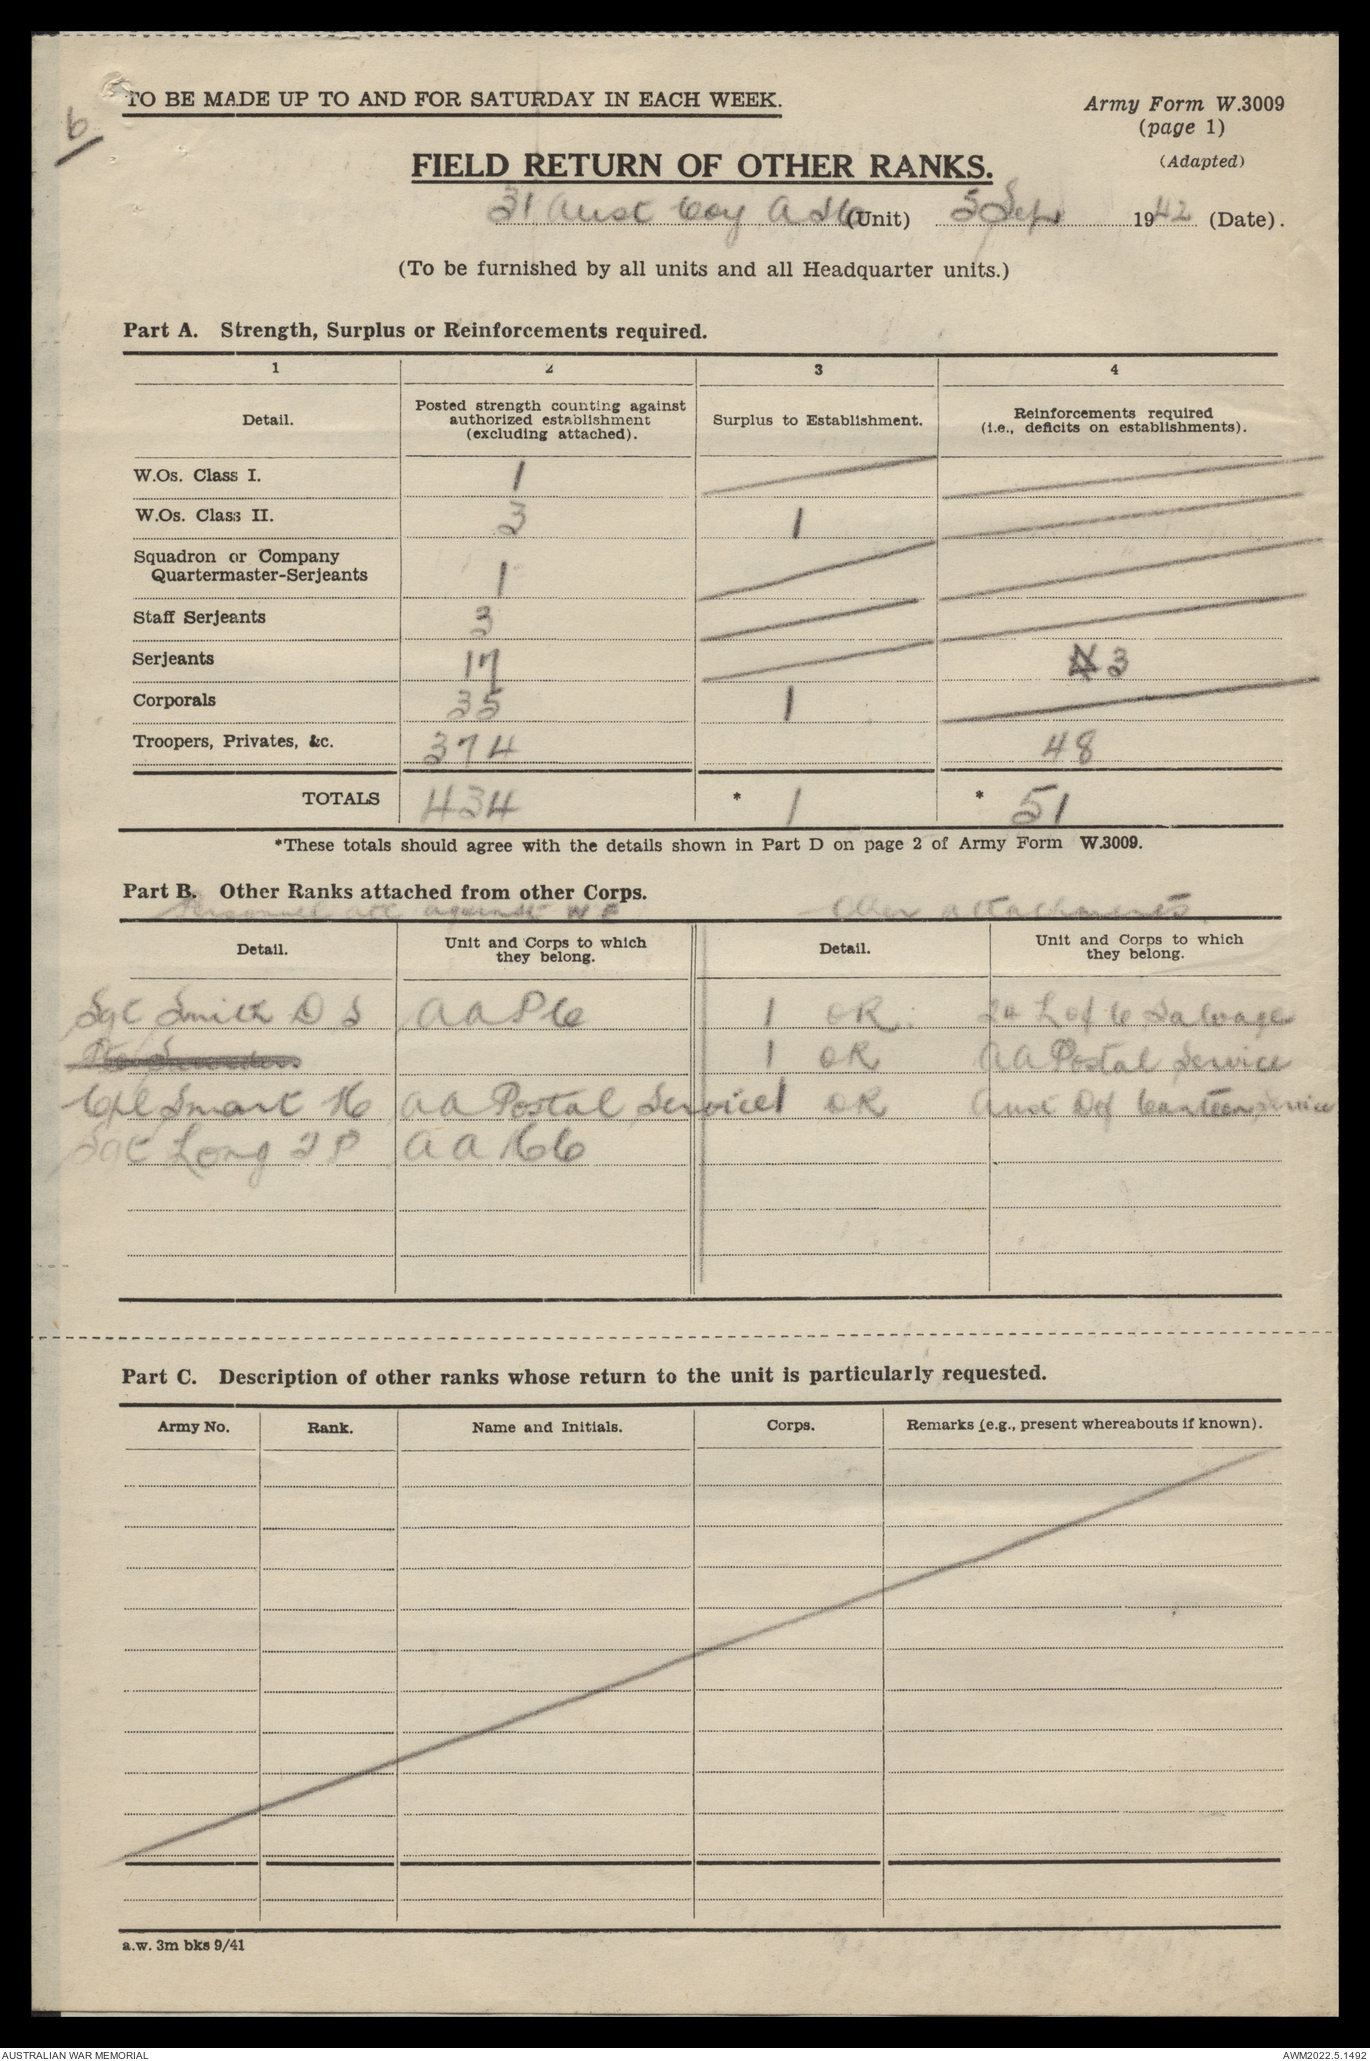 TO BE MADE UP TO AND FOR SATURDAY IN EACH WEEK.
Army Form W.3009
(page 1)
(Adapted)
6
FIELD RETURN OF OTHER RANKS.
31 Aust Coy ASC (Unit) 5 Sep 1942 (Date).
(To be furnished by all units and all Headquarter units.)
Part A. Strength, Surplus or Reinforcements required.
1 2 3 4
Detail. Posted strength counting against authorized establishment (excluding attached). Surplus to Establishment. Reinforcements required (i.e., deficits on establishments).
W.Os. Class I. 1
W.Os. Class II. 3 1
Squadron or Company Quartermaster-Serjeants 1
Staff Serjeants 3
Serjeants 17 3
Corporals 35 1
Troopers, Privates, &c. 374 48
TOTALS 434 * 1 * 51
*These totals should agree with the details shown in Part D on page 2 of Army Form W.3009.
Part B. Other Ranks attached from other Corps.
Personnel att against W E Other attachments
Detail. Unit and Corps to which they belong. Detail. Unit and Corps to which they belong.
Sgt Smith D S AAPC 1 OR. L of C Salvage
1 OR AA Postal Service
Cpl Smart H AA Postal Service 1 OR Aust Def Canteen Service
Sgt Long P AACC
Part C. Description of other ranks whose return to the unit is particularly requested.
Army No. Rank. Name and Initials. Corps. Remarks (e.g., present whereabouts if known).
a.w. 3m bks 9/41
AUSTRALIAN WAR MEMORIAL
AWM2022.5.1492